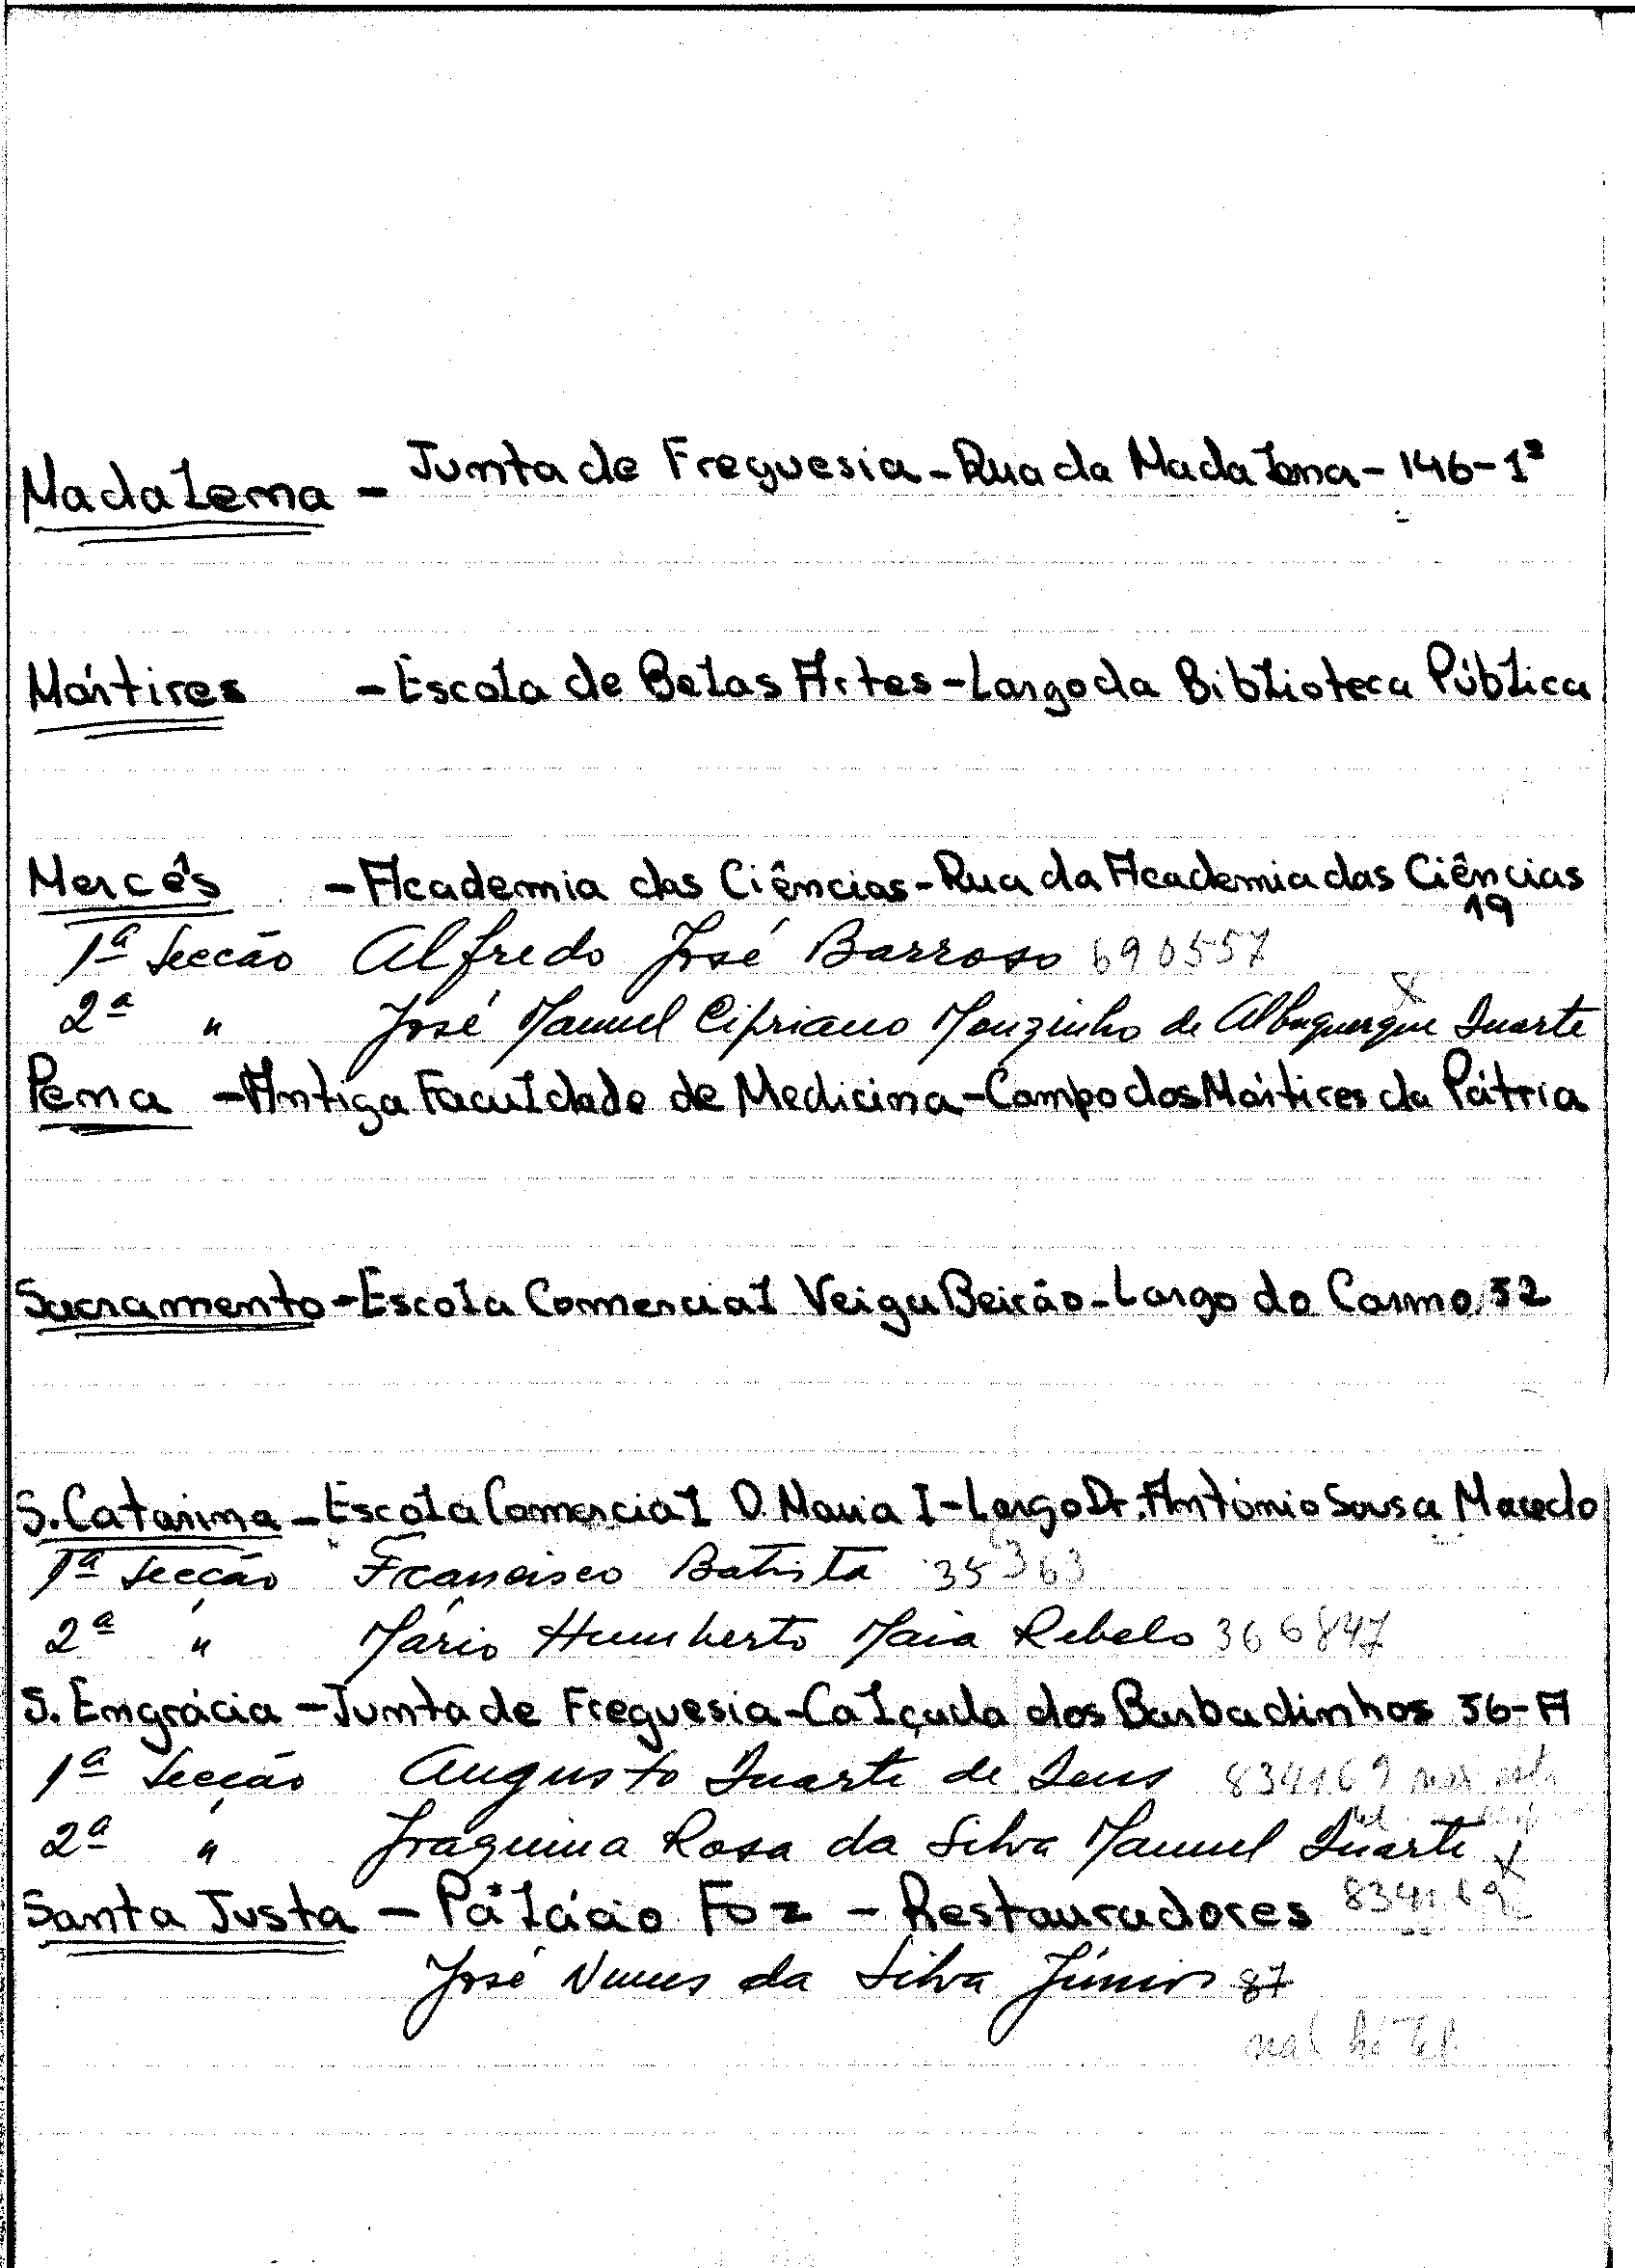 Madalena - Junta de Freguesia - Rua da Madalena - 146 - 1º
Mártires - Escola de Belas Artes - Largo da Biblioteca Pública
Mercês - Academia das Ciências - Rua da Academia das Ciências
19
1ª Secção Alfredo José Barroso 690557
x
2ª " José Manuel Cipriano Mouzinho de Albuquerque Duarte
Pena - Antiga Faculdade de Medicina - Campo dos Mártires da Pátria
Sacramento - Escola Comercial Veiga Beirão - Largo do Carmo, 32
S. Catarina - Escola Comercial D. Maria I - Largo Dr. António Sousa Macedo
1ª Secção Francisco Batista 35363
2ª " Mário Humberto Maia Rebelo 366847
S. Engrácia - Junta de Freguesia - Calçada dos Barbadinhos 56-A
1ª Secção Augusto Duarte de Deus 834169
2ª " Joaquina Rosa da Silva Manuel Duarte x
Santa Justa - Palácio Foz - Restauradores 834169
José Nunes da Silva Júnior 87
não há Tel.